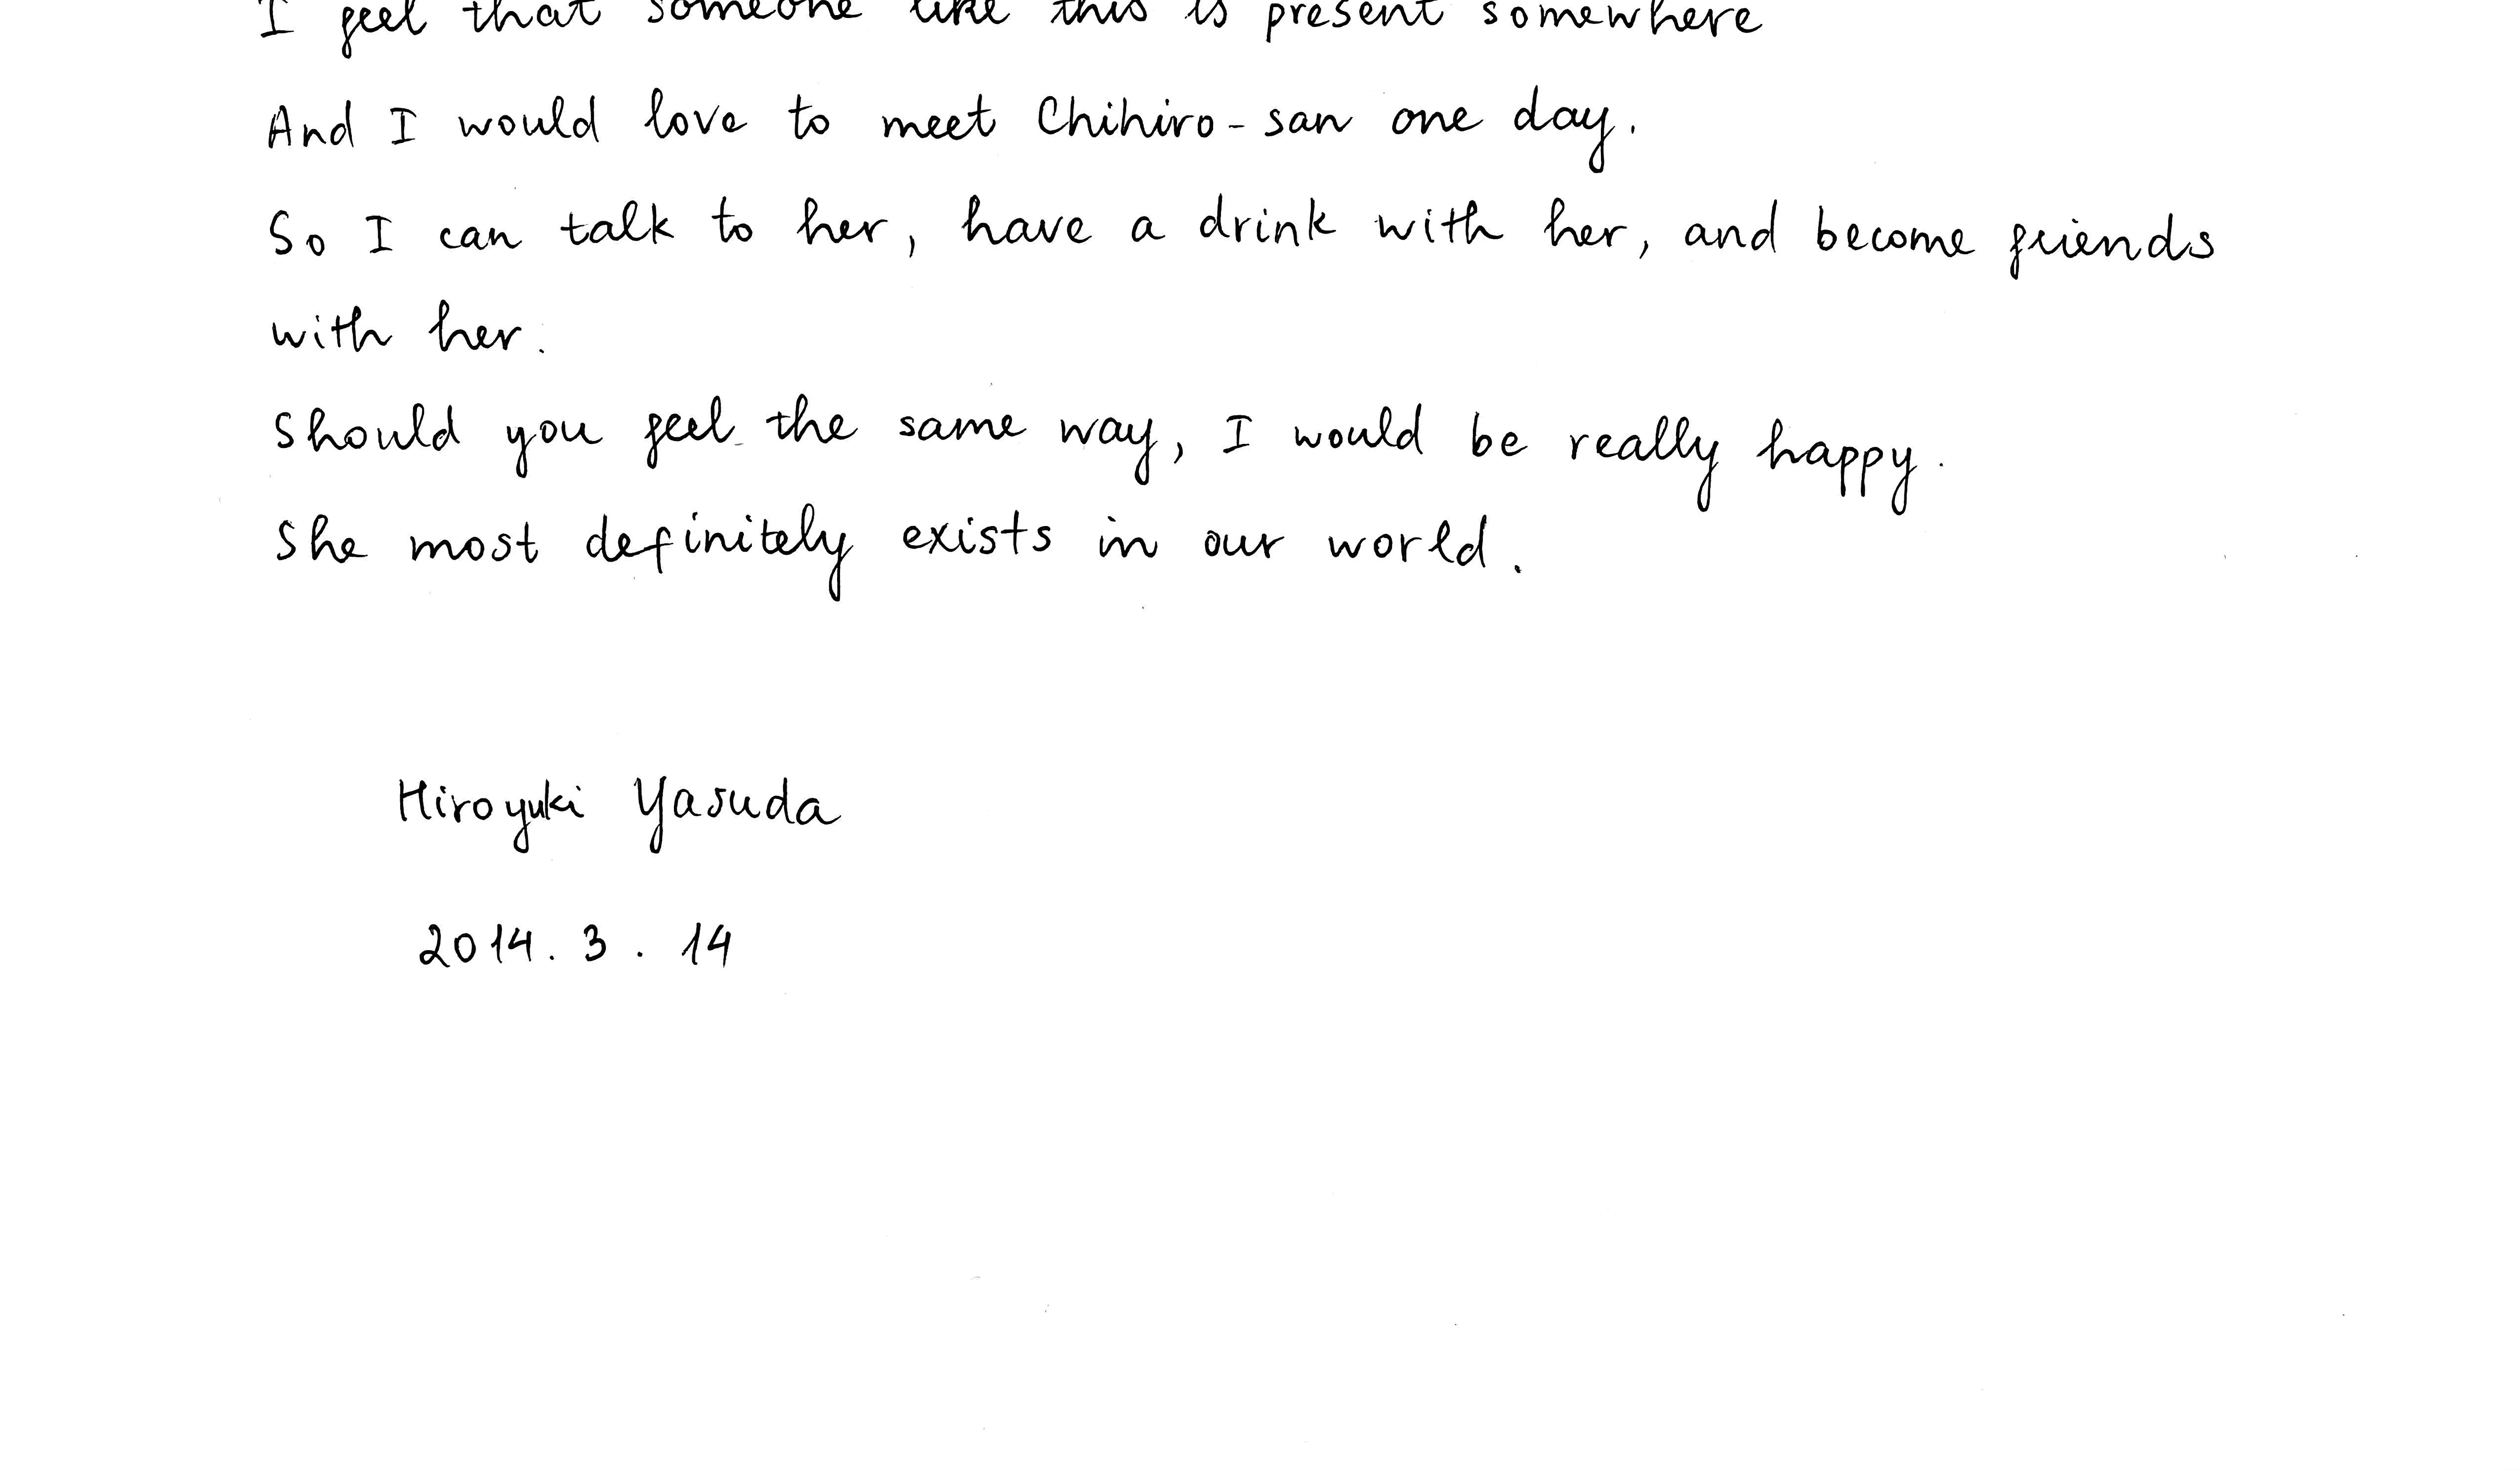 I feel that someone like this is present somewhere
And I would love to meet Chihiro-san one day.
So I can talk to her, have a drink with her, and become friends
with her.
Should you feel the same way, I would be really happy.
She most definitely exists in our world.
Hiroyuki Yasuda
2014. 3. 14